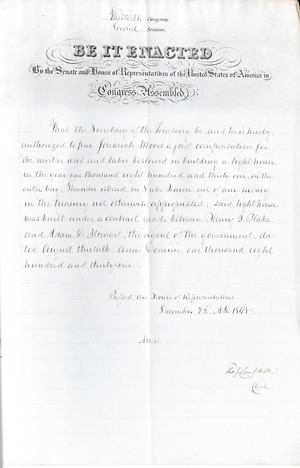 Thirtieth Congress.
Second Session.
BE IT ENACTED
By the Senate and House of Representatives of the United States of America in
Congress Assembled,
That the Secretary of the Treasury be, and he is hereby,
authorized to pay Jeremiah Moors a just compensation for
the material used and labor bestowed in building a light house
in the year one thousand eight hundred and thirty one, on the
outer bay, Thunder island, in Lake Huron, out of any money
in the Treasury not otherwise appropriated; said light-house
was built under a contract made between Henry B.
and Adam D. Steuart, the agent of the government, da-
ted August thirtieth, Anno Domini, one thousand eight
hundred and thirty-one.
Passed the House of Representatives
December 22, AD 1848.
Attest
Tho. J. Campbell
Clerk